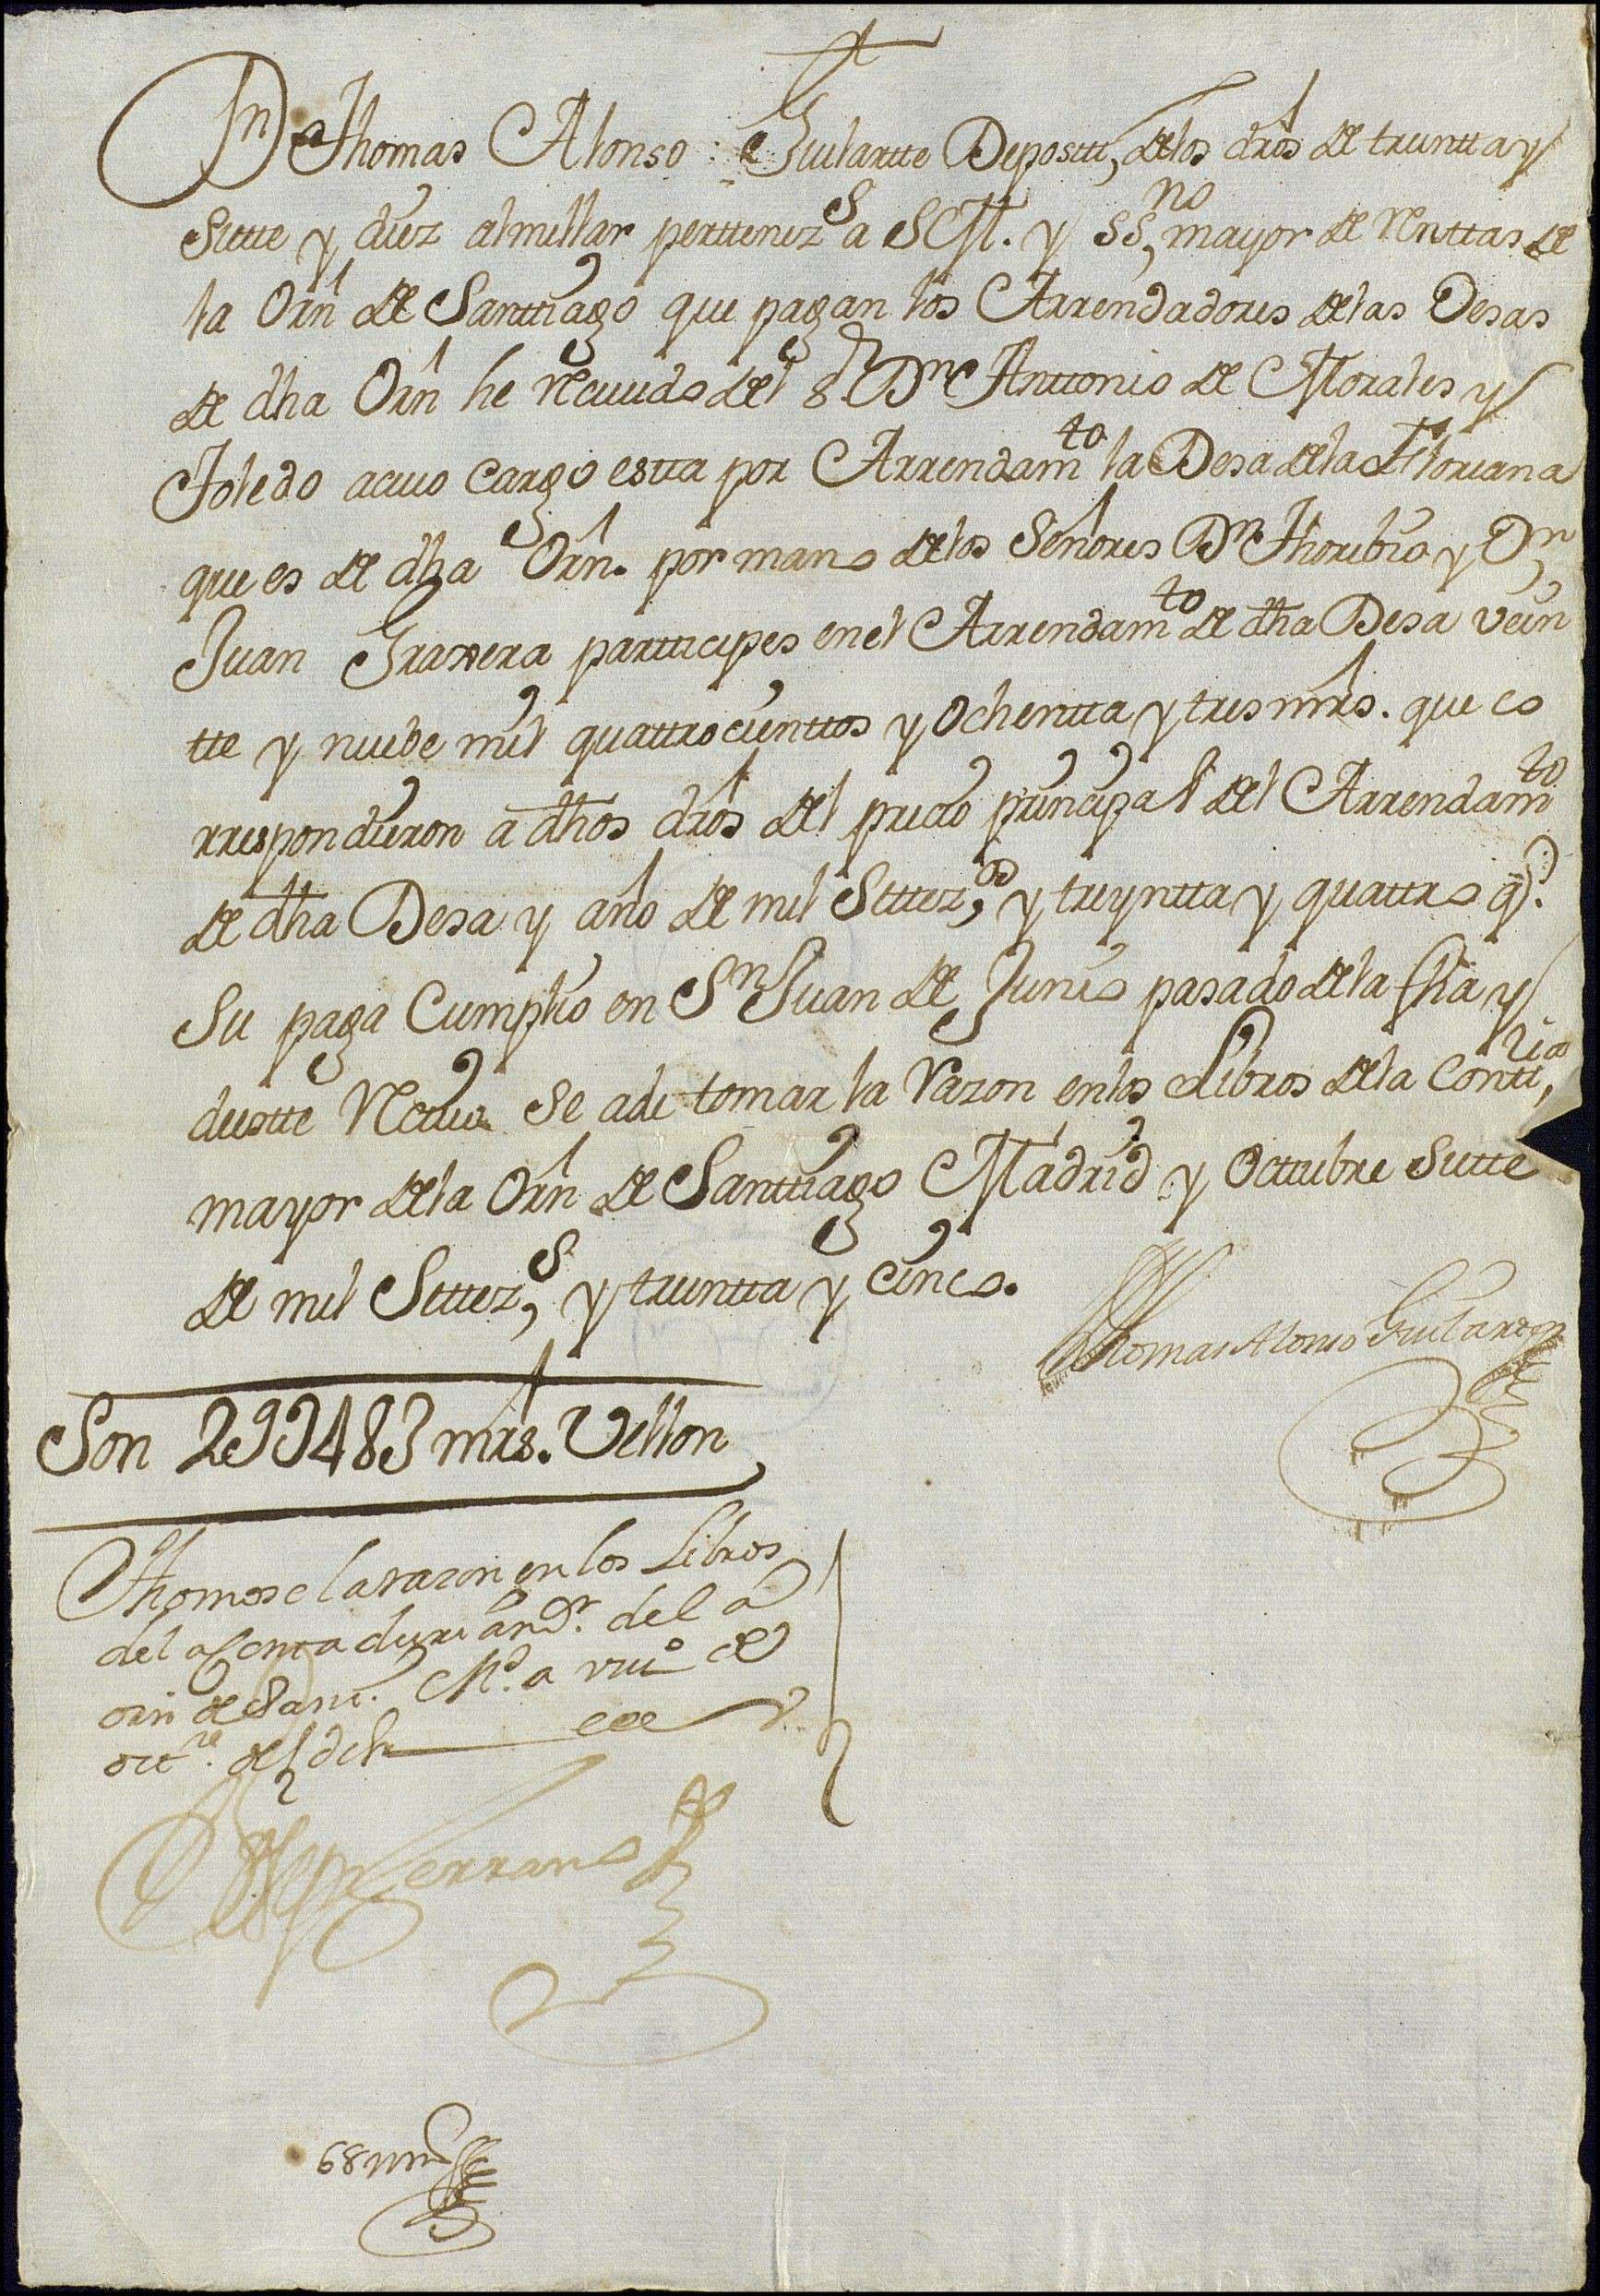 Dn Thomas Alonso Guilartte Depositt,, delos dros de treintta y
Siette y diez almillar perttenezs a S M. y SSno mayor de Renttas de
la Orn de Santtiago que pagan los Arrendadores delas Desas
de dha Orn he Recivido del Sr Dn Anttonio de Morales y
Toledo acuio Cargo estta por Arrendamto la Desa dela Floriana
que es de dha Orn. por mano delos Señores Dn Thoribio y Dn
Juan Traxera partticipes enel Arrendamto de dha Desa vein
tte y nuebe mill quattrocienttos y Ochentta y tres mrs. que co
rrespondieron a dhos dros del precio principal del Arrendamto
de dha Desa y año de mil Settezs y treyntta y quattro q.e
Su paga Cumplio en Sn Juan de Junio pasado dela fha y
desstte Recivo Se ade tomar la Razon enlos Libros dela Conttria
mayor dela Orn de Santtiago Madrid y Octtubre Siette
de mil Settezs y treintta y cinco.
Thomas Alonso Guilarte
Son 29U483 mrs. Vellon
Thomose la razon en los Libros
del a Contaduria m.or del a
orn de Santt.o M.d a viii.o de
octt.re de
Joseph Serrano
68 mrs